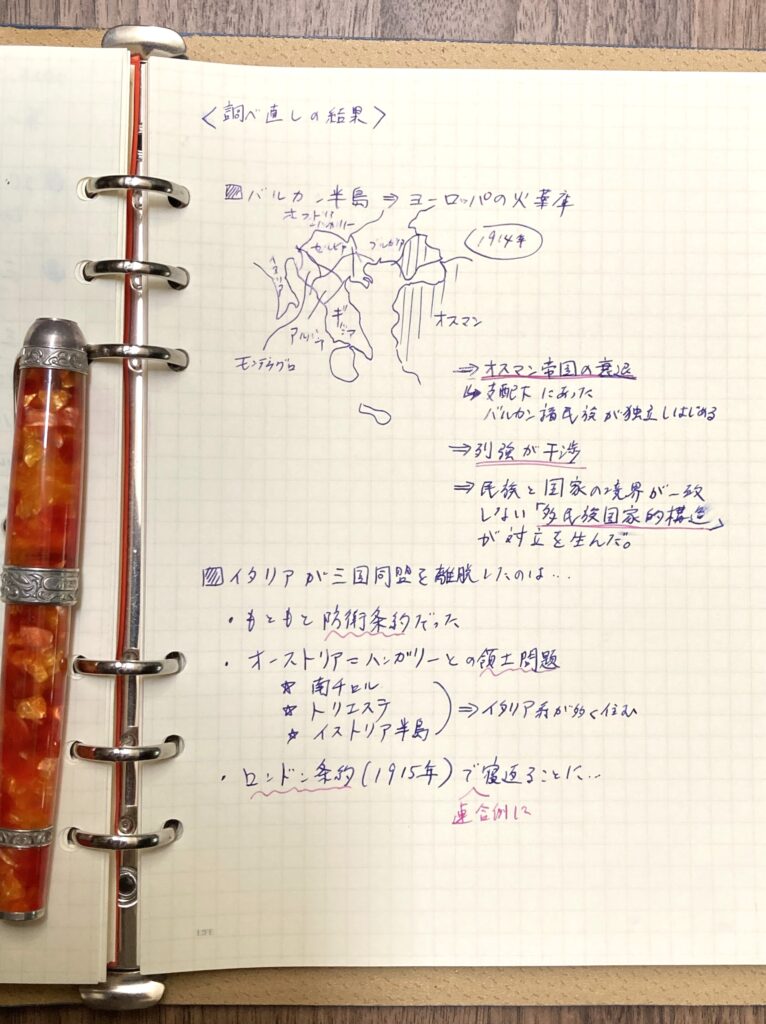 〈調べ直しの結果〉
バルカン半島 ⇒ ヨーロッパの火薬庫
オーストリア
ハンガリー
セルビア
ブルガリア
1914年
イタリア
ギリシア
アルバニア
オスマン
モンテネグロ
⇒ オスマン帝国の衰退
↳ 支配下にあった
バルカン諸民族が独立しはじめる
⇒ 列強が干渉
⇒ 民族と国家の境界が一致
しない「多民族国家的構造」
が対立を生んだ。
イタリアが三国同盟を離脱したのは…
・もともと防術条約だった
・オーストリア=ハンガリーとの領土問題
☆ 南チロル
☆ トリエステ ⇒ イタリア系が多く住む
☆ イストリア半島
・ロンドン条約(1915年)で寝返ることに…
連合側に